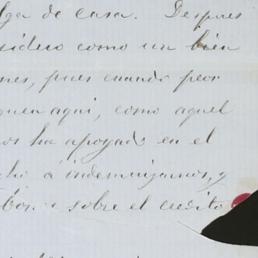 lga de casa. Despues
sidero como un bien
nes, pues cuando peor
quen aqui, como aquel
os ha apoyado en el
cho a indemnizarnos, y
sobre el credito